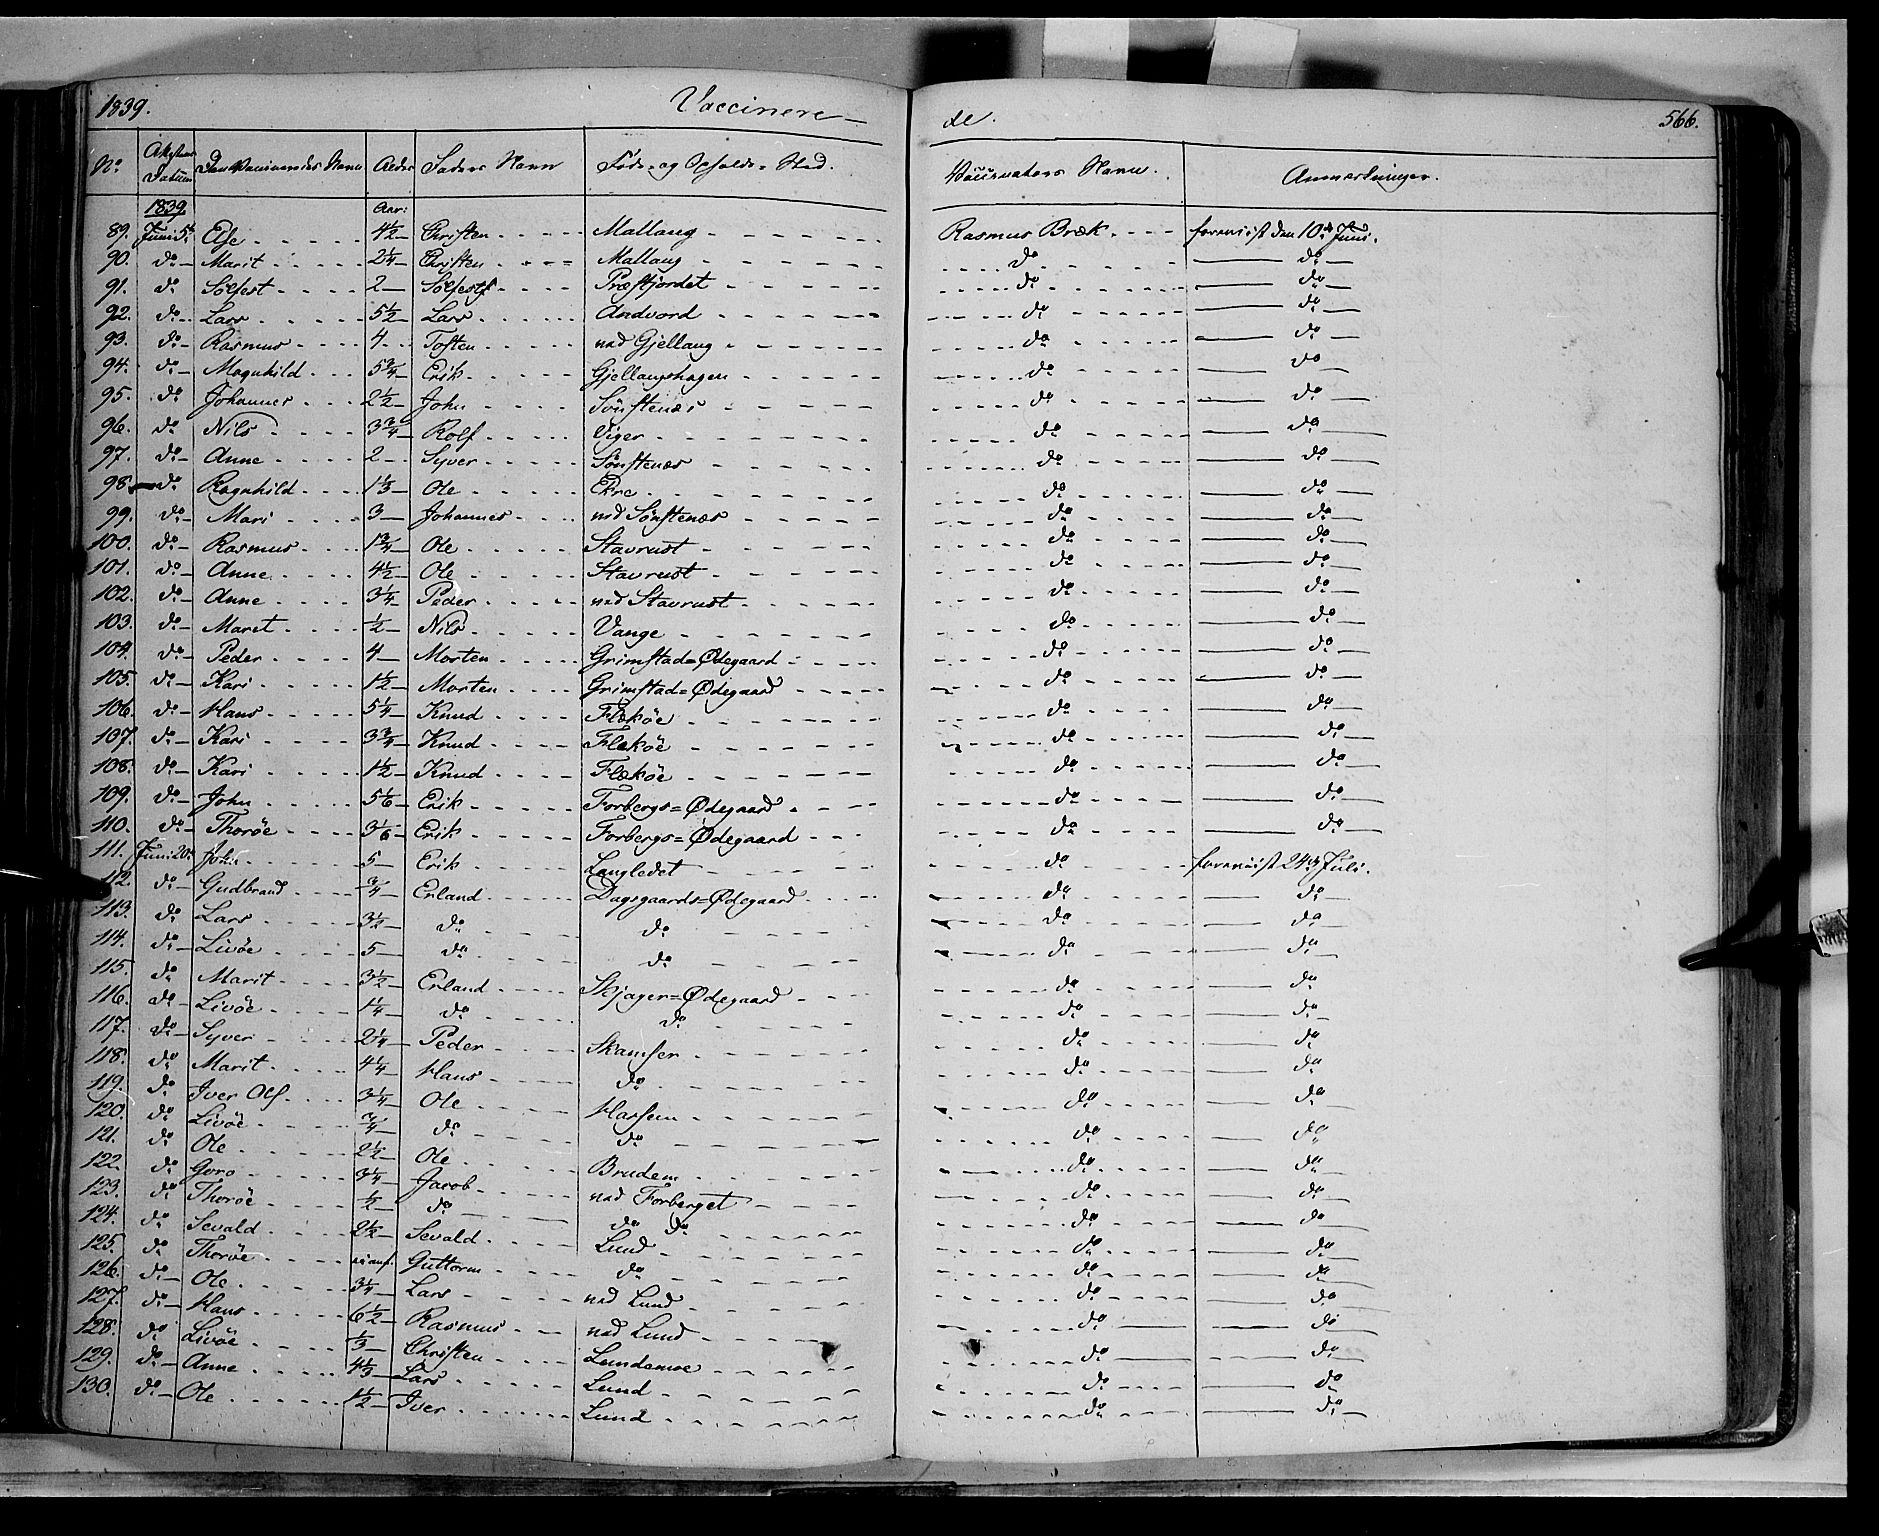 1839. Vaccinere- de. 566.
No. Attestens Datum Den Vaccineredes Navn Alder Faders Navn Føde- og Opholds-Sted. Vaccinateurs Navn. Anmærkninger.
1839 Aar:
89. Juni 5t Else 4½ Christen Mallang Rasmus Bræk foreviist den 10de Juni.
90. do Marit 2¼ Christen Mallang do do
91. do Sølfest 2 Sølfest Præstjordet do do
92. do Lars 5½ Lars Andvord do do
93. do Rasmus 4 Tosten ned Gjellang do do
94. do Magnhild 5¾ Erik Gjellangshagen do do
95. do Johannes 2½ John Sönstenæs do do
96. do Nils 3¾ Rolf Viger do do
97. do Anne 2 Syver Sönstenæs do do
98. do Ragnhild 1⅓ Ole Ekre do do
99. do Mari 3 Johannes ned Sönstenæs do do
100. do Rasmus 1¾ Ole Stavrust do do
101. do Anne 4½ Ole Stavrust do do
102. do Anne 3¼ Peder ned Stavrust do do
103. do Maret ½ Nils Vange do do
104. do Peder 4 Morten Grimstad=Ødegaard do do
105. do Kari 1½ Morten Grimstad=Ødegaard do do
106. do Hans 5¼ Knud Flækøe do do
107. do Kari 3¾ Knud Flækøe do do
108. do Kari 1½ Knud Flækøe do do
109. do John 5⅙ Erik Forbergs=Ødegaard do do
110. do Thorøe 3⅙ Erik Forbergs=Ødegaard do do
111. Juni 20. John 5 Erik Langledet do foreviist 24de Juli.
112. do Gudbrand ¾ Erland Dagsgaards=Ødegaard do do
113. do Lars 3½ do do do do
114. do Livöe 5 do do do do
115. do Marit 3½ Erland Skjager=Ødegaard do do
116. do Livöe 1¼ do do do do
117. do Syver 2¼ Peder Skamser do do
118. do Marit 4¼ Hans do do do
119. do Iver Olf 3¼ Ole Harsem do do
120. do Livöe ¾ do do do do
121. do Ole 2½ Ole Brudem do do
122. do Goro 3¼ Jacob ned Forberget do do
123. do Thorøe ½ do do do do do
124. do Sevald 2½ Sevald Lund do do
125. do Thorøe Guttorm do do do
126. do Ole 3¼ Lars ned Lund do do
127. do Hans 6½ Rasmus ned Lund do do
128. do Livöe ⅓ Christen Lundemoe do do
129. do Anne 4½ Lars Lund do do
130. do Ole 1½ Iver Lund do do